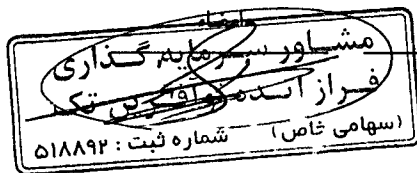 امضاء
مشاور سرمایه گذاری
فراز ایده نوآفرین تک
(سهامی خاص) شماره ثبت : ۵۱۸۸۹۲